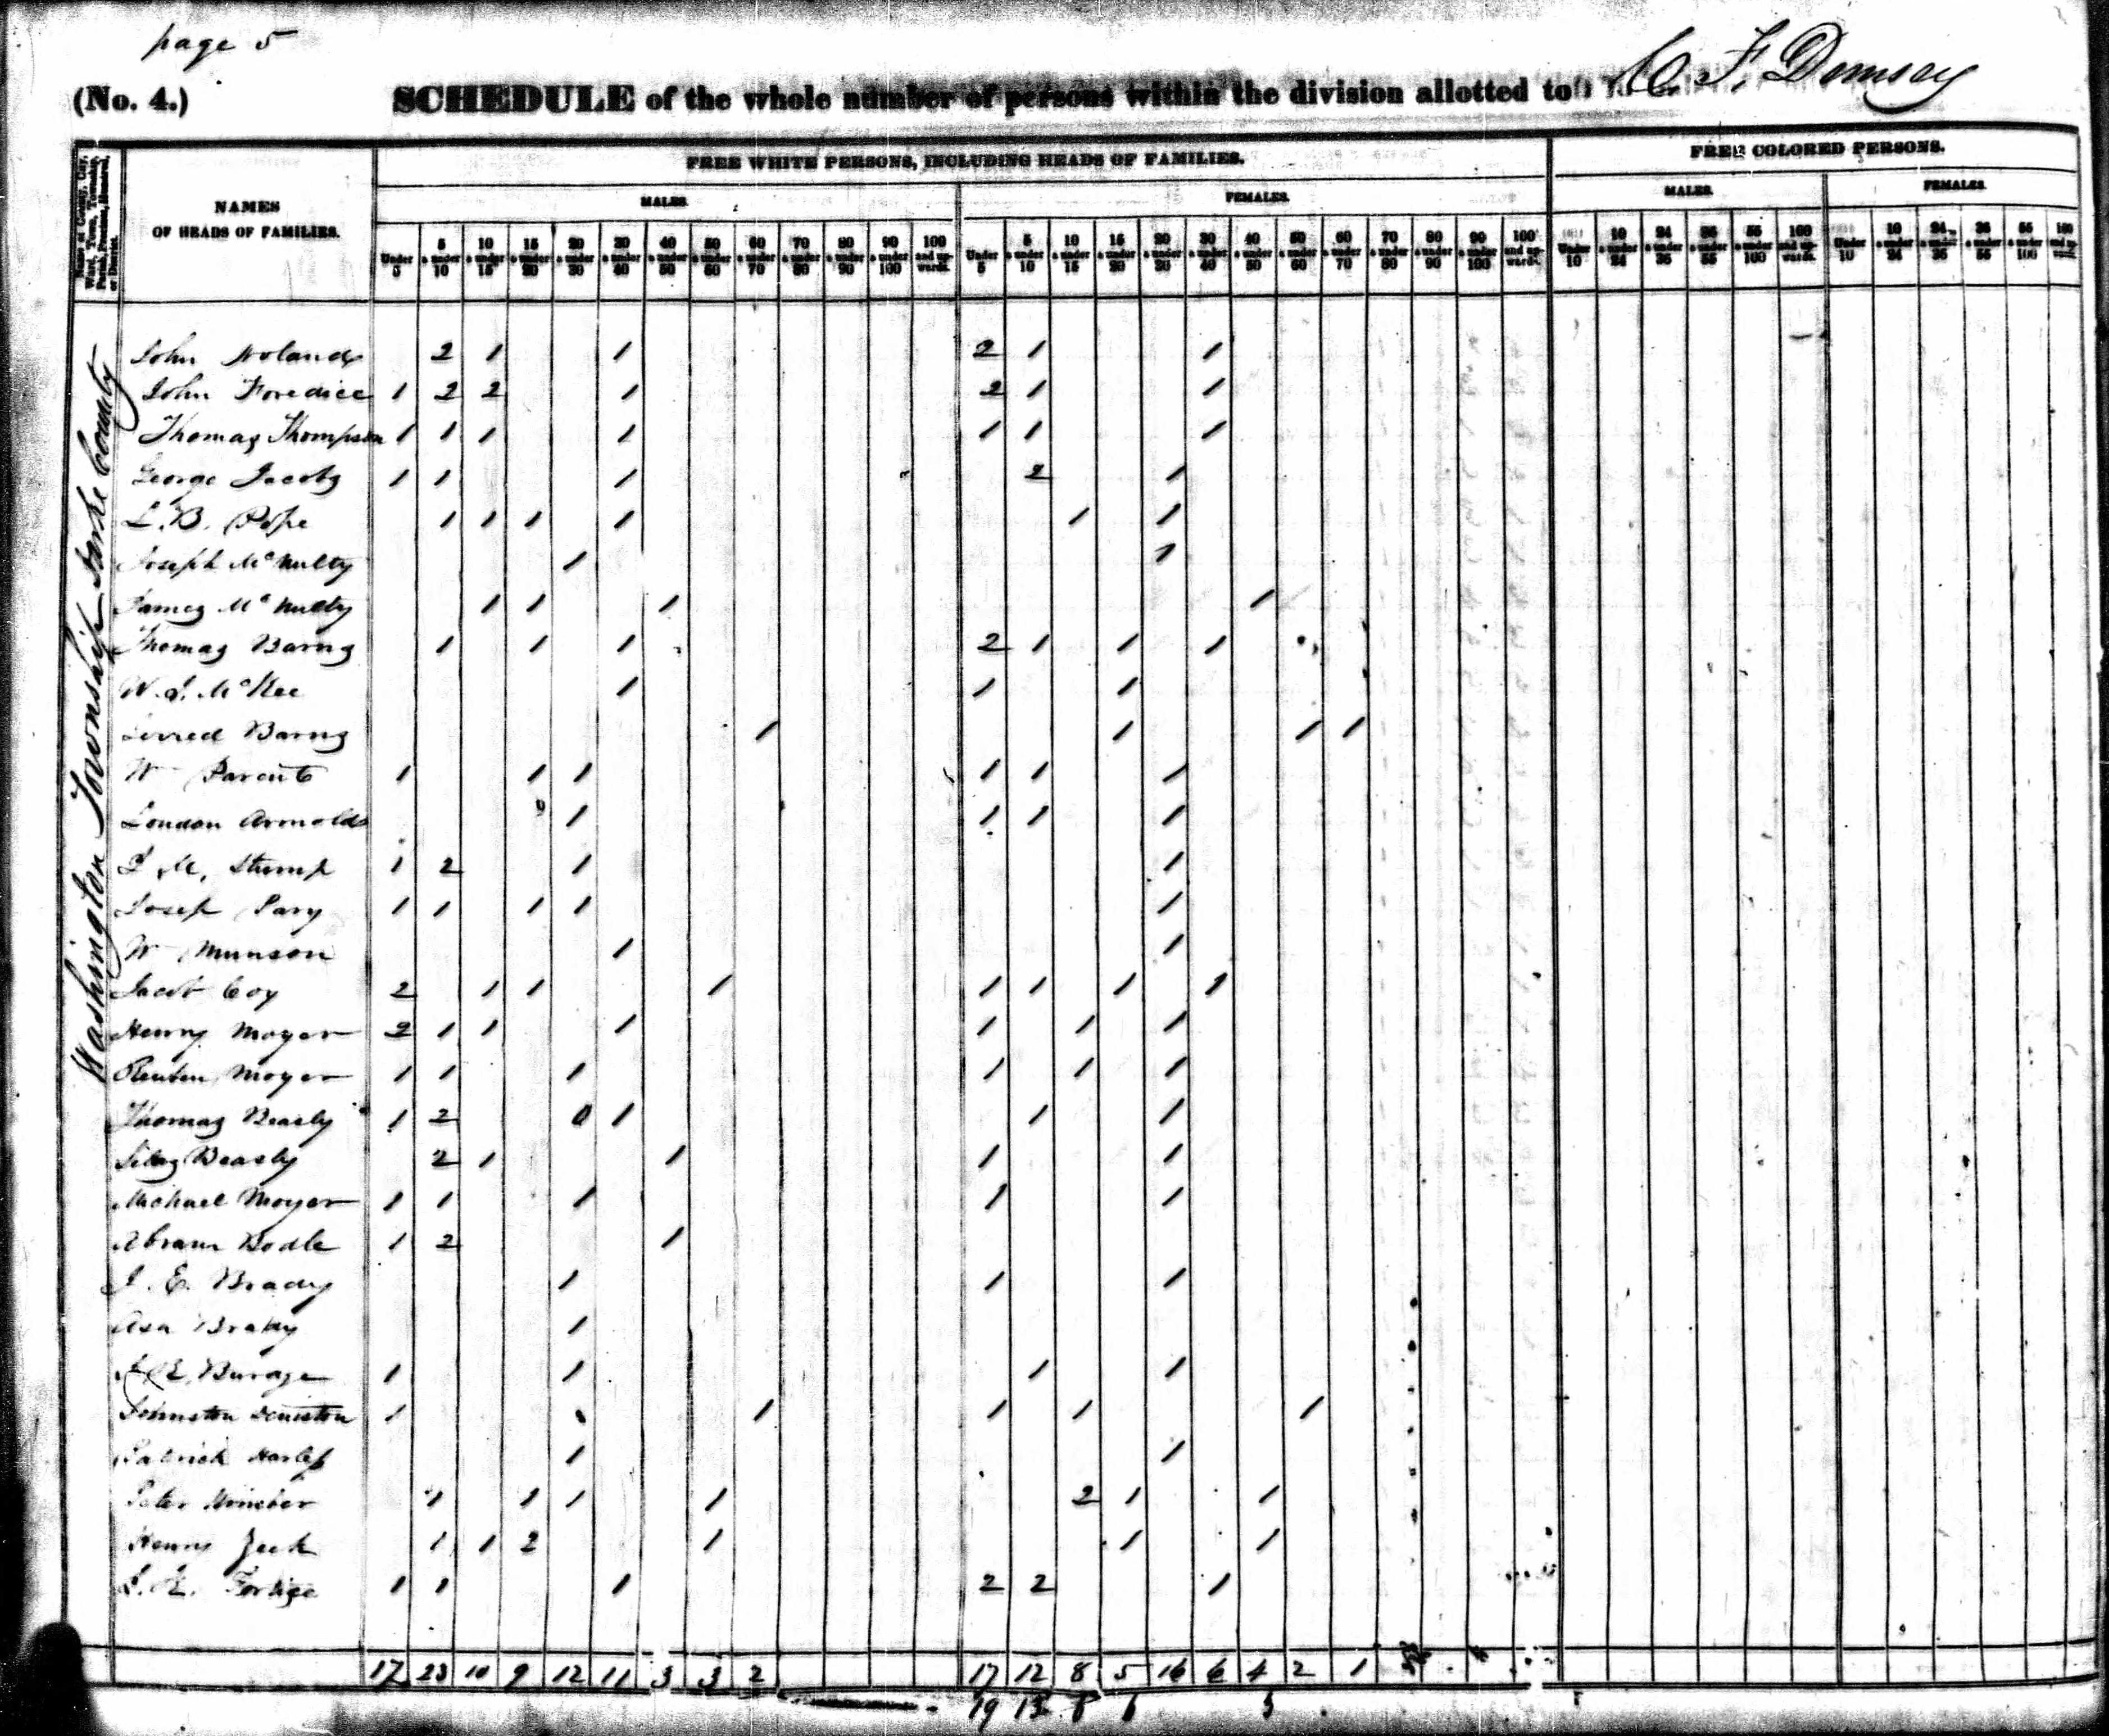 page 5
(No. 4.) SCHEDULE of the whole number of persons within the division allotted to C. F. Demsey
FREE WHITE PERSONS, INCLUDING HEADS OF FAMILIES.
FREE COLORED PERSONS.
Name of County, City, Ward, Town, Township, Parish, Precinct, Hundred, or District.
NAMES OF HEADS OF FAMILIES.
MALES. FEMALES. MALES. FEMALES.
Under 5 5 & under 10 10 & under 15 15 & under 20 20 & under 30 30 & under 40 40 & under 50 50 & under 60 60 & under 70 70 & under 80 80 & under 90 90 & under 100 100 and upwards. Under 5 5 & under 10 10 & under 15 15 & under 20 20 & under 30 30 & under 40 40 & under 50 50 & under 60 60 & under 70 70 & under 80 80 & under 90 90 & under 100 100 and upwards. Under 10 10 & under 24 24 & under 36 36 & under 55 55 & under 100 100 and upwards. Under 10 10 & under 24 24 & under 36 36 & under 55 55 & under 100 100 and upwards.
Washington Township Darke County
John Noland 2 1 1 2 1 1
John Foredice 1 2 2 1 2 1 1
Thomas Thompson 1 1 1 1 1 1 1
George Jacobs 1 1 1 2 1
L. B. Pope 1 1 1 1 1 1
Joseph McNulty 1 1
James McNulty 1 1 1 1
Thomas Barns 1 1 1 2 1 1 1
W. J. McKee 1 1 1
Barns 1 1 1 1
W Parents 1 1 1 1 1 1
London Arnold 1 1 1 1
M. Stump 1 2 1 1
Josep Pary 1 1 1 1 1
W Munson 1 1
Jacob Coy 2 1 1 1 1 1 1 1
Henry Moyer 2 1 1 1 1 1 1
Reuben Moyer 1 1 1 1 1 1
Thomas Bearly 1 2 0 1 1 1
Silas Bearly 2 1 1 1 1
Michael Moyer 1 1 1 1 1
Abram Bodle 1 2 1
J. E. Brady 1 1 1
Asa Brady 1
Burage 1 1 1 1
Johnston Deniston 1 1 1 1 1
Patrick 1 1
Peter 1 1 1 1 2 1 1
Henry Zeek 1 1 2 1 1 1
1 1 1 2 2 1
17 23 10 9 12 11 3 3 2 17 12 8 5 16 6 4 2 1
19 13 8 6 5